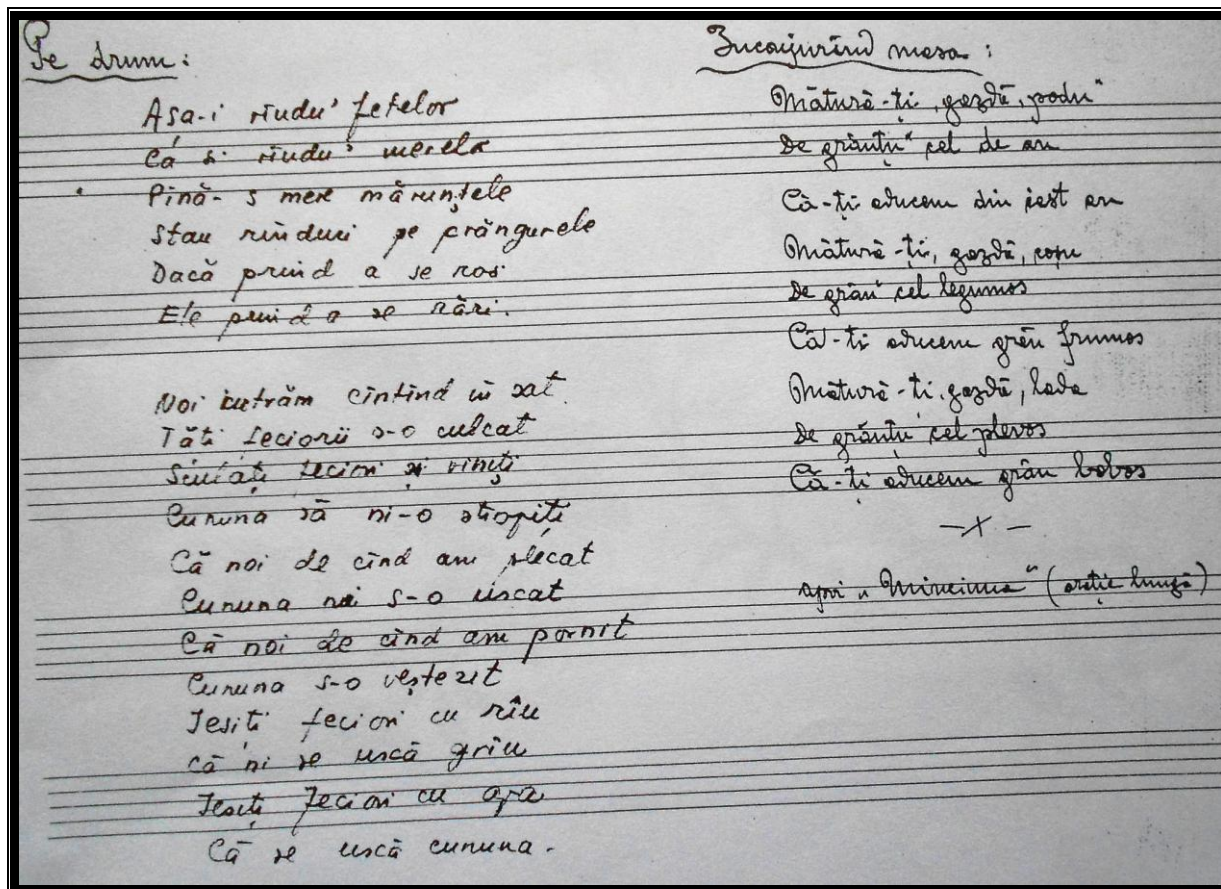 Pe drum:
Așa-i rîndu' fetelor
Ca și rîndu' merelor
Pînă-s mere mărunțele
Stau rînduri pe crăngurele
Dacă prind a se roși
Ele prind a se rări.
Noi intrăm cîntînd în sat
Tăți feciorii s-o culcat
Sculați feciori și viniți
Cununa să ni-o stropiți
Că noi de cînd am plecat
Cununa ni s-o uscat
Că noi de cînd am pornit
Cununa s-o veștezit
Ieșiți feciori cu rîu
Că ni se uscă grîu
Ieșiți feciori cu apa
Că se uscă cununa.
Înconjurînd masa:
Mătură-ți, gazdă, podu"
De grânțu" cel de an
Că-ți aducem din iest an
Mătură-ți, gazdă, coșu
De grâu" cel legumos
Că-ți aducem grâu frumos
Mătură-ți, gazdă, lada
De grânțu cel plevos
Că-ți aducem grâu bobos
—x—
apoi „Minciuna" (orație lungă)